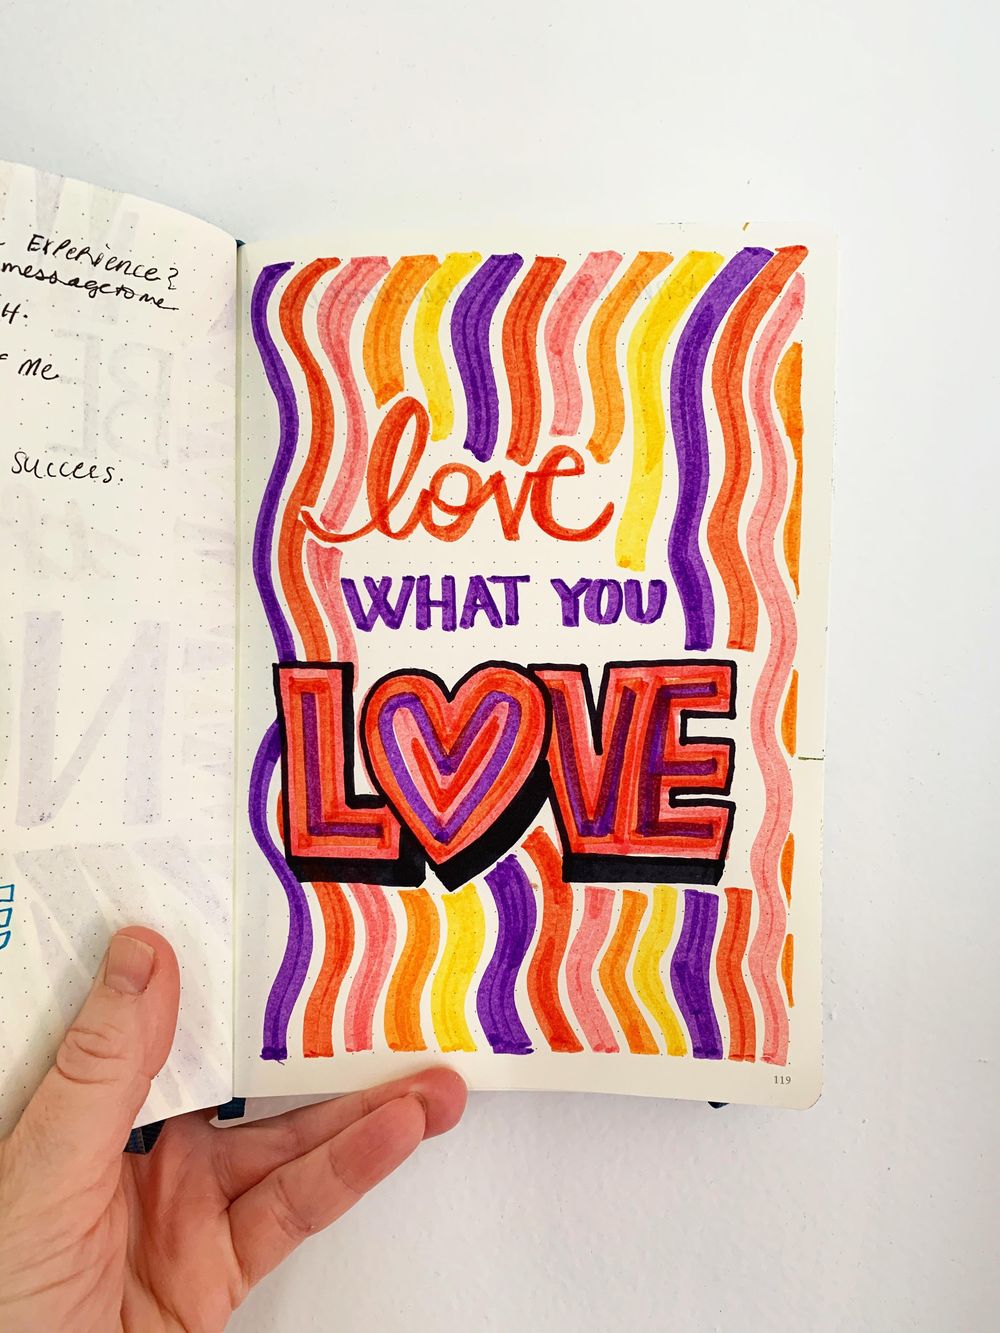 EXPERIENCE?
message to me
H.
me
success.
love
WHAT YOU
LOVE
119